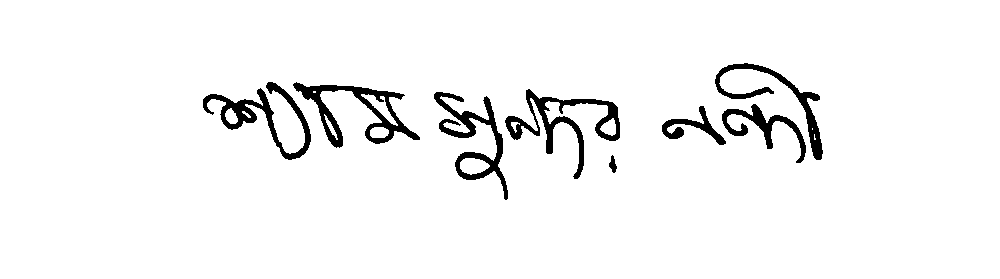 শ্যাম সুন্দর নন্দী